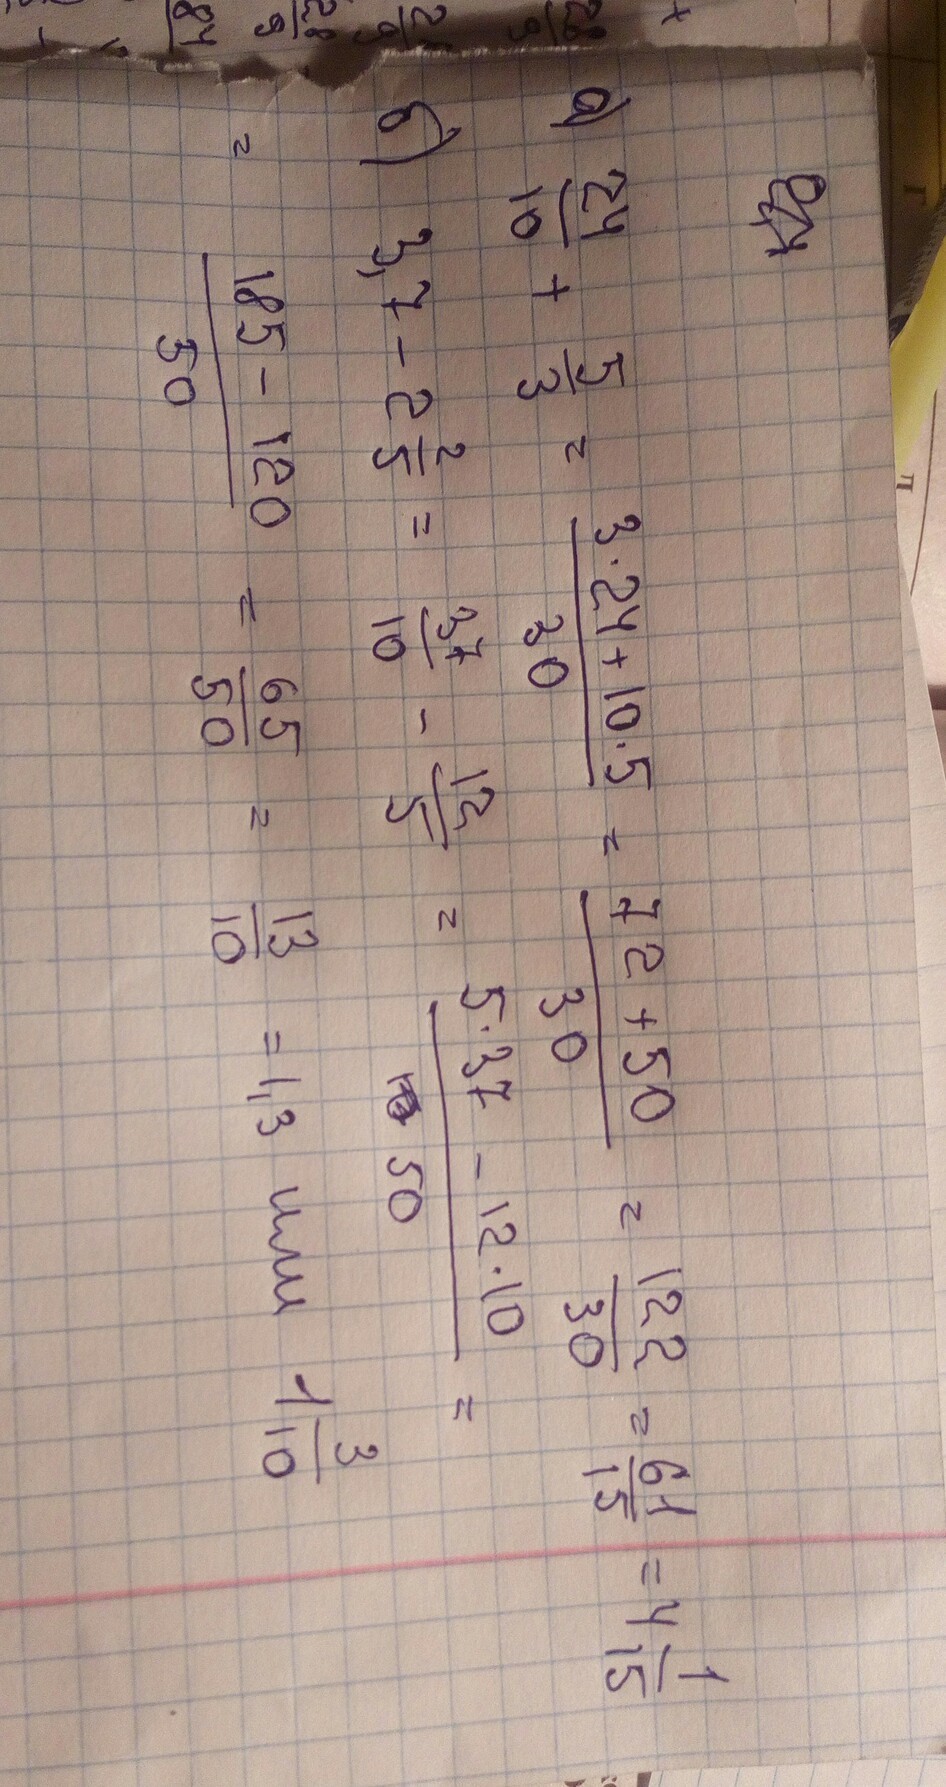 а) 24/10 + 5/3 = (3·24+10·5)/30 = (72+50)/30 = 122/30 = 61/15 = 4 1/15
б) 3,7 - 2 2/5 = 37/10 - 12/5 = (5·37 - 12·10)/50 =
= (185 - 120)/50 = 65/50 = 13/10 = 1,3 или 1 3/10